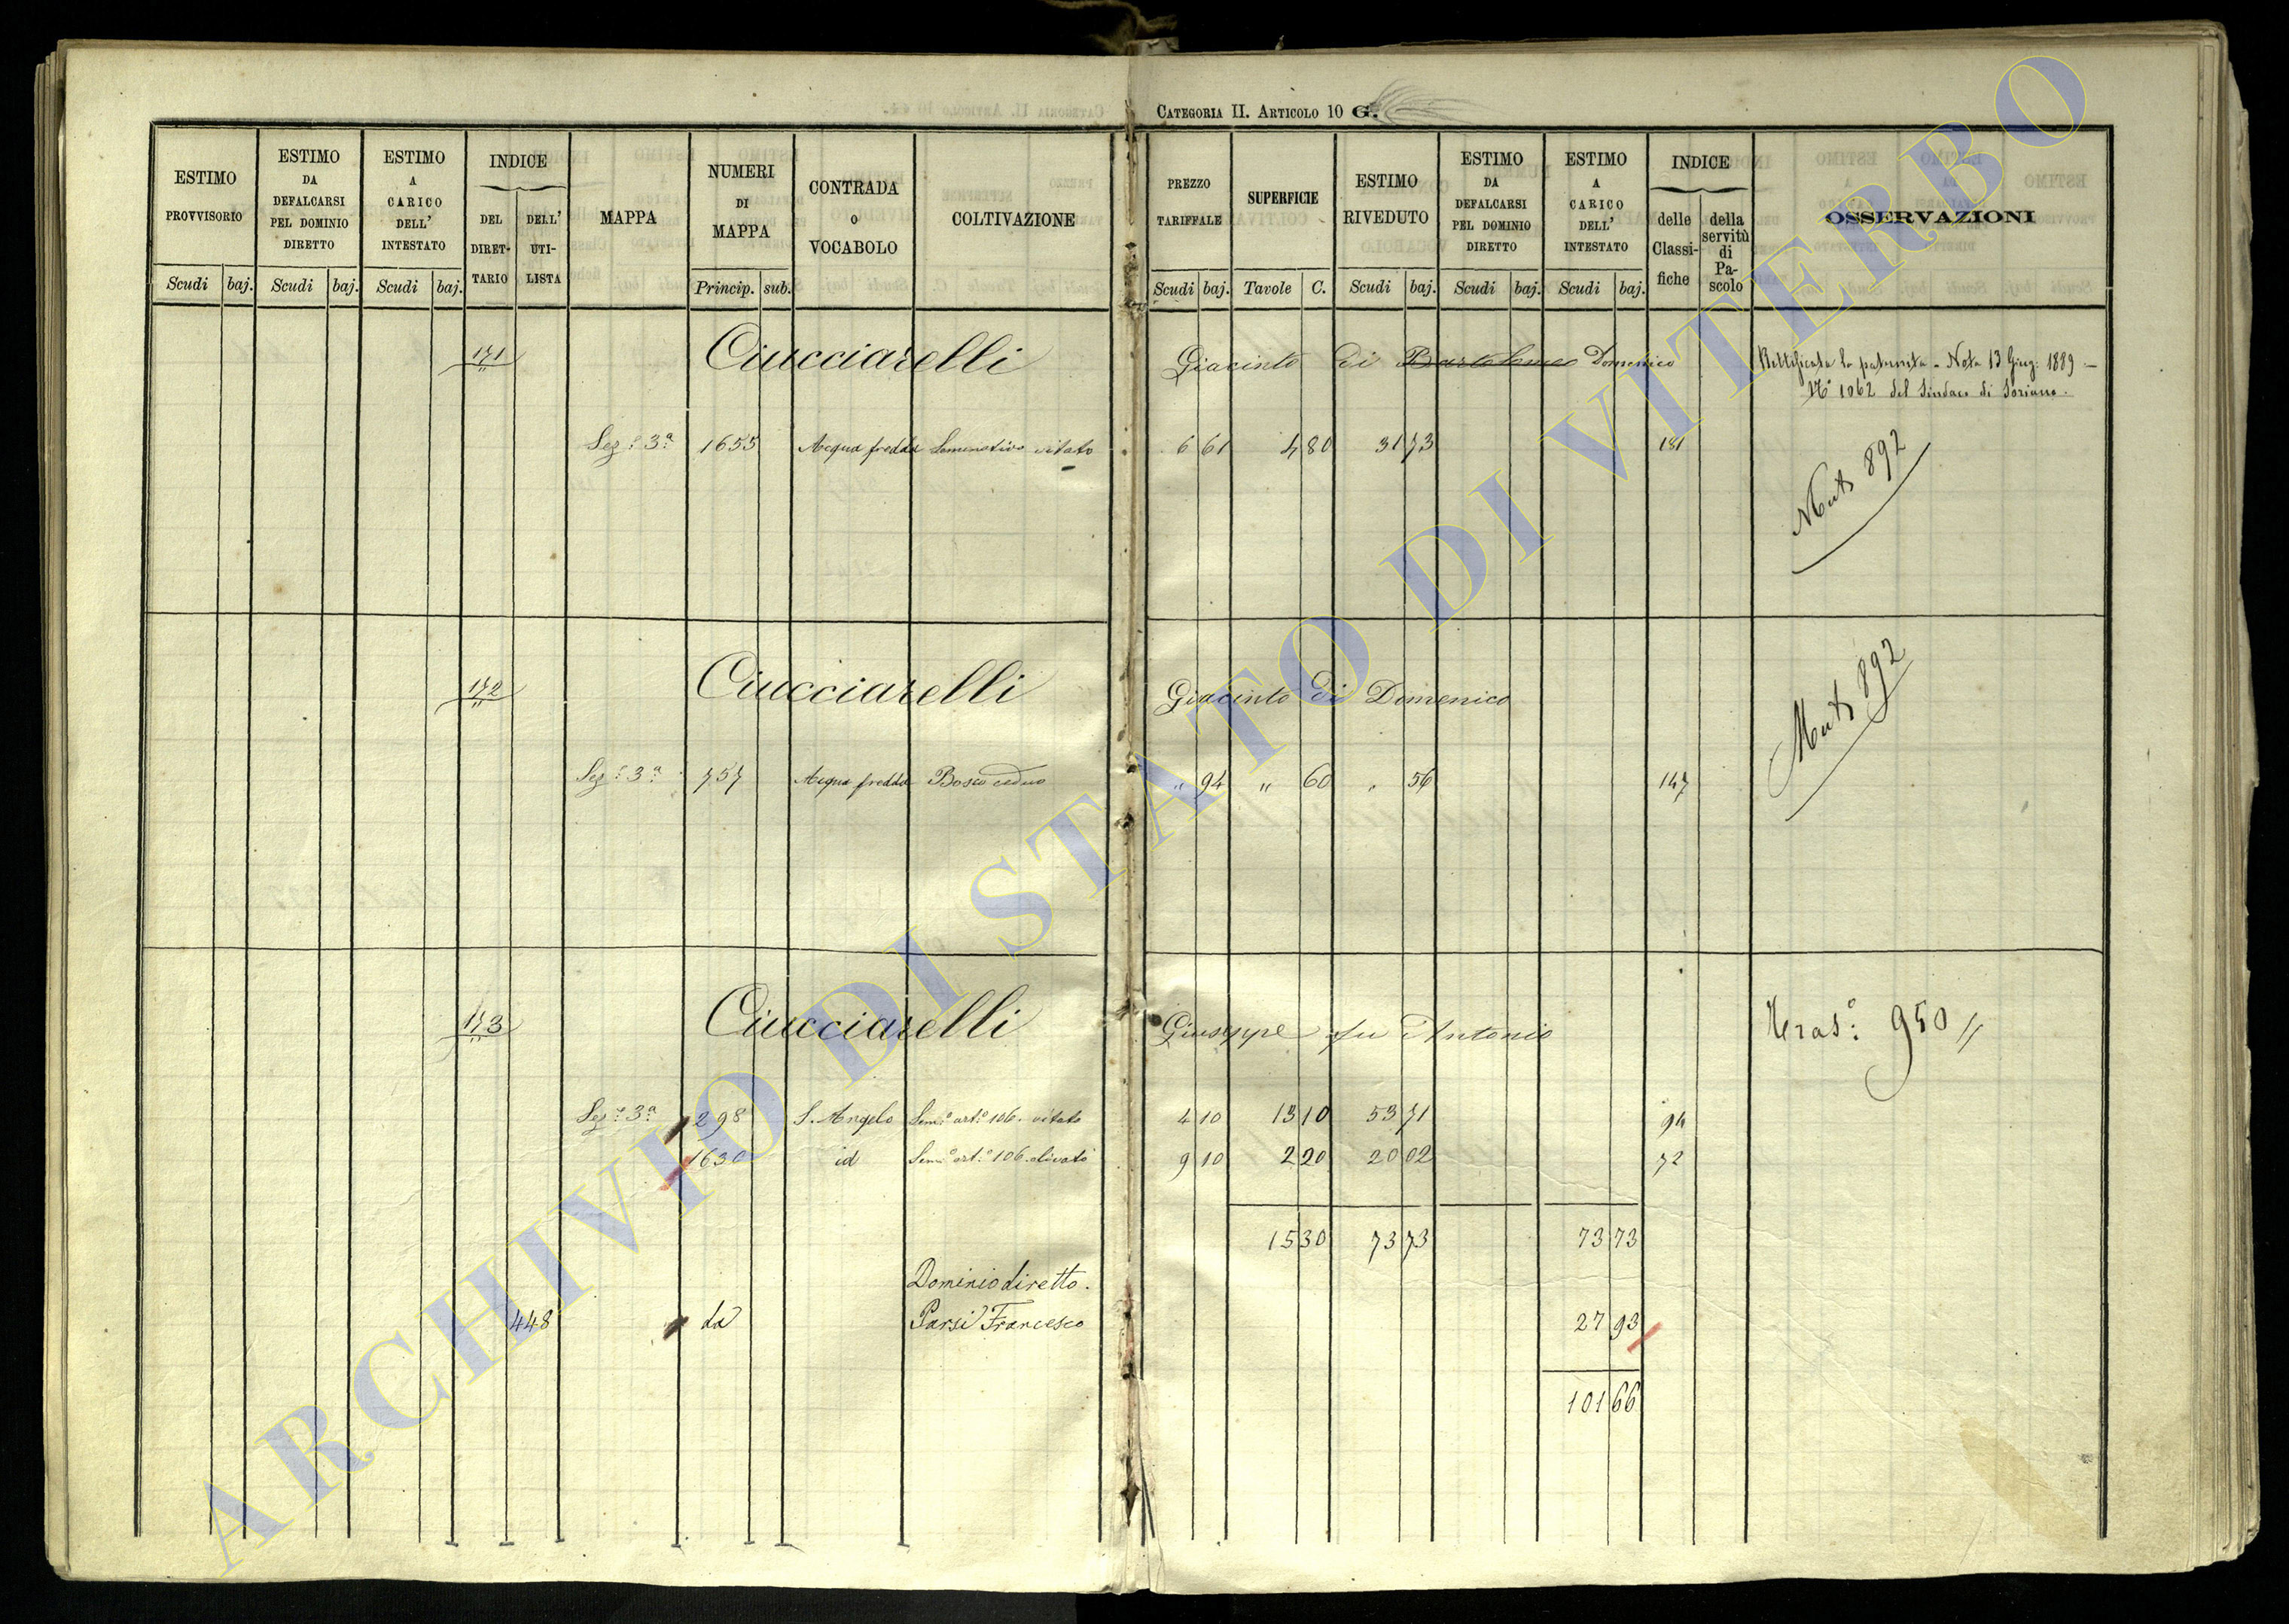 CATEGORIA II. ARTICOLO 10 G.
ESTIMO PROVVISORIO Scudi baj.
ESTIMO DA DEFALCARSI PEL DOMINIO DIRETTO Scudi baj.
ESTIMO A CARICO DELL' INTESTATO Scudi baj.
INDICE DEL DIRETTARIO DELL' UTILISTA
MAPPA
NUMERI DI MAPPA Princip. sub.
CONTRADA O VOCABOLO
COLTIVAZIONE
PREZZO TARIFFALE Scudi baj.
SUPERFICIE Tavole C.
ESTIMO RIVEDUTO Scudi baj.
ESTIMO DA DEFALCARSI PEL DOMINIO DIRETTO Scudi baj.
ESTIMO A CARICO DELL' INTESTATO Scudi baj.
INDICE delle Classifiche della servitù di Pascolo
OSSERVAZIONI
171 Ciucciarelli Giacinto di Bartolomeo Domenico Rettificata la paternita - Nota 13 Giug: 1889 -
N° 1062 del Sindaco di Soriano.
Sez.e 3a 1655 Acqua fredda Seminativo vitato 6 61 4 80 31 73 181
Mut 892
172 Ciucciarelli Giacinto di Domenico
Mut 892
Sez.e 3a 757 Acqua fredda Bosco ceduo " 94 " 60 " 56 147
173 Ciucciarelli Giuseppe fu Antonio Tras°: 950 //
Sez.e 3a 298 S. Angelo Sem.o art.o 106. vitato 4 10 13 10 53 71 94
1630 id Sem.o art.o 106. olivato 9 10 2 20 20 02 72
15 30 73 73 73 73
Dominio diretto.
448 da Parsi Francesco 27 93
101 66
ARCHIVIO DI STATO DI VITERBO